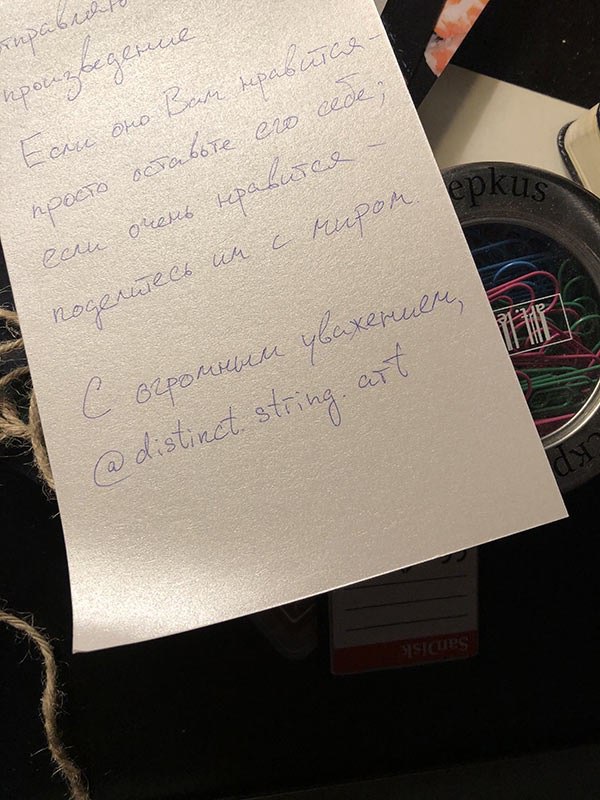 отправляю
произведение
Если оно Вам нравится -
просто оставьте его себе;
если очень нравится -
поделитесь им с миром.
С огромным уважением,
@distinct.string.art
epkus
SanDisk